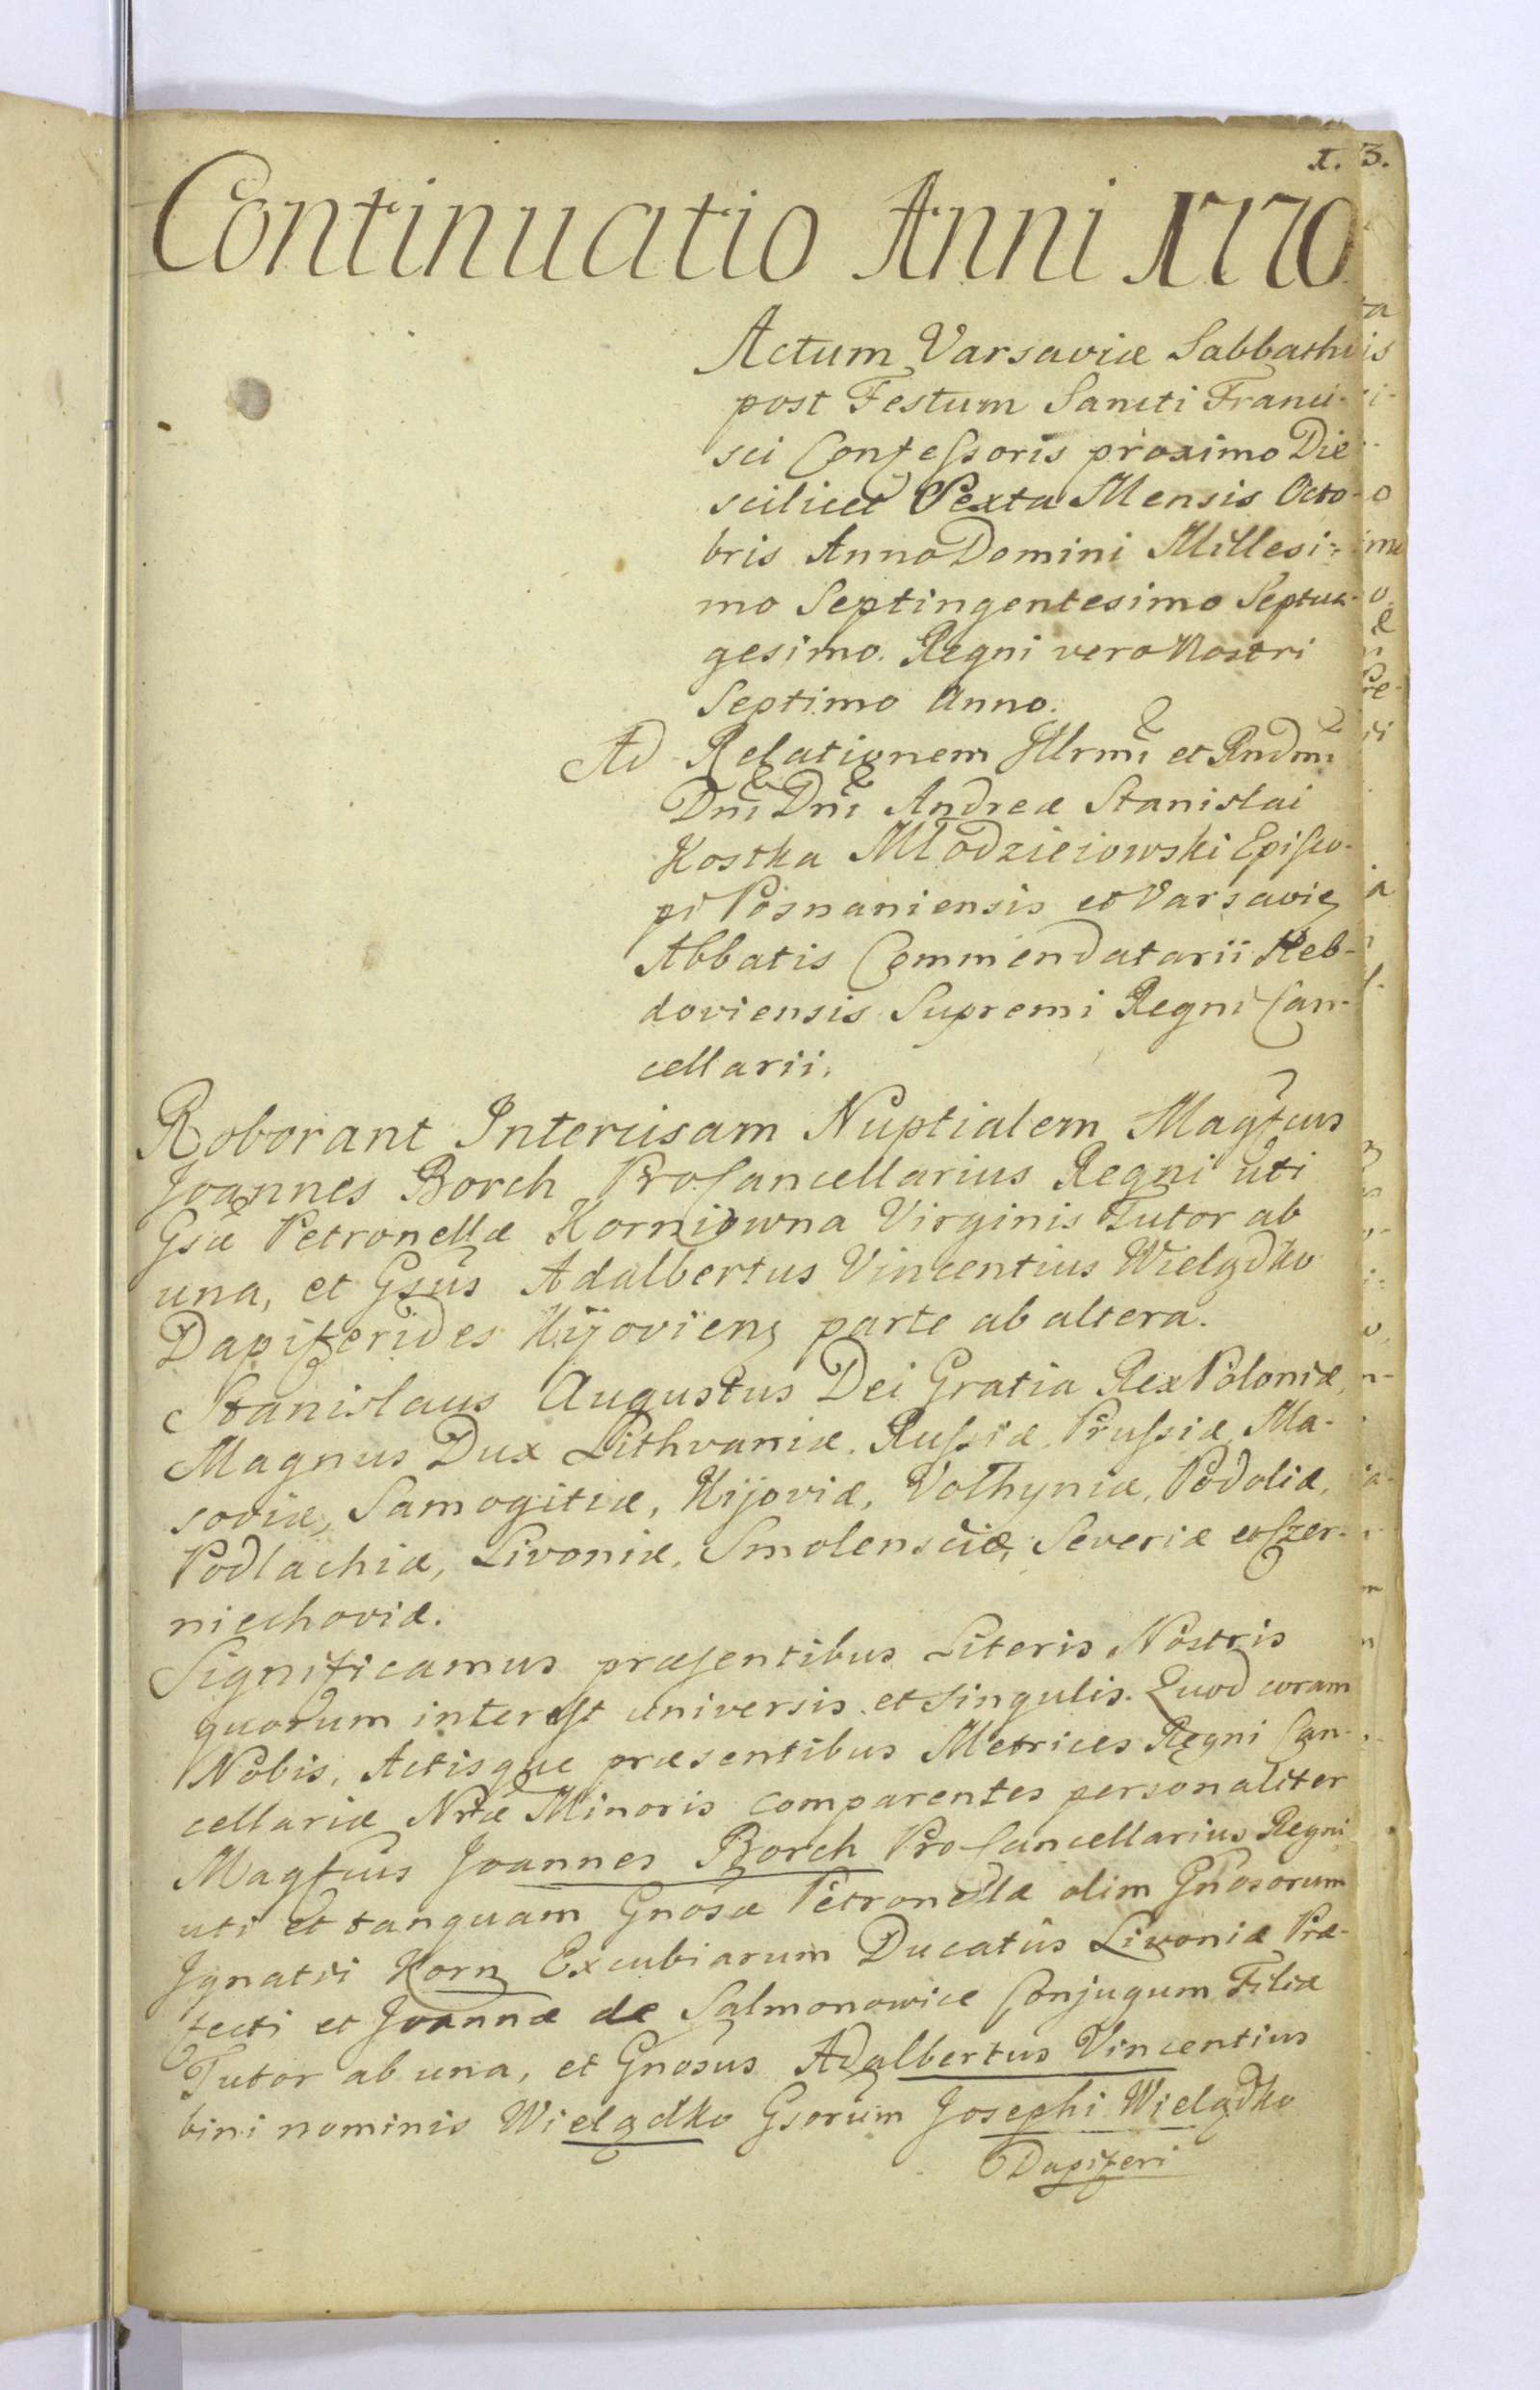 1. 3.
Continuatio Anni 1770
Actum Varsaviæ Sabbatho
post Festum Sancti Franci-
sci Confessoris proximo Die
scilicet Sexta Mensis Octo-
bris Anno Domini Millesi-
mo Septingentesimo Septua-
gesimo. Regni vero Nostri
Septimo Anno.
Ad Relationem Illrmi et Rndmi
Dni Dni Andreæ Stanislai
Kostka Młodzieiowski Episco-
pi Posnaniensis et Varsavię
Abbatis Commendatarii Heb-
doviensis Supremi Regni Can-
cellarii.
Roborant Intercisam Nuptialem Magfcus
Joannes Borch ProCancellarius Regni uti
Gsæ Petronellæ Korniowna Virginis Tutor ab
una, et Gsus Adalbertus Vincentius Wielądko
Dapiferides Kijoviens parte ab altera.
Stanislaus Augustus Dei Gratia Rex Poloniæ,
Magnus Dux Lithvaniæ, Russiæ, Prussiæ, Ma-
soviæ, Samogitiæ, Kijoviæ, Volhyniæ, Podoliæ,
Podlachiæ, Livoniæ, Smolensciæ, Severiæ et Czer-
niechoviæ.
Significamus præsentibus Literis Nostris
quorum interest universis et singulis. Quod coram
Nobis, Actisque præsentibus Metrices Regni Can-
cellariæ Nræ Minoris comparentes personaliter
Magfcus Joannes Borch ProCancellarius Regni
uti et tanquam Gnosæ Petronellæ olim Gnosorum
Ignatii Korn Excubiarum Ducatus Livoniæ Præ-
fecti et Joannæ de Salmonowice Conjugum Filiæ
Tutor ab una, et Gnosus Adalbertus Vincentius
bini nominis Wielądko Gsorum Josephi Wielądko
Dapiferi